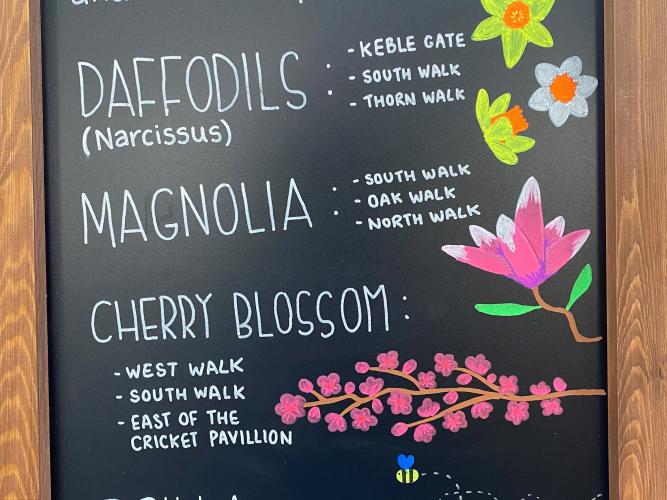 DAFFODILS :
(Narcissus)
- KEBLE GATE
- SOUTH WALK
- THORN WALK
MAGNOLIA :
- SOUTH WALK
- OAK WALK
- NORTH WALK
CHERRY BLOSSOM :
- WEST WALK
- SOUTH WALK
- EAST OF THE
CRICKET PAVILLION